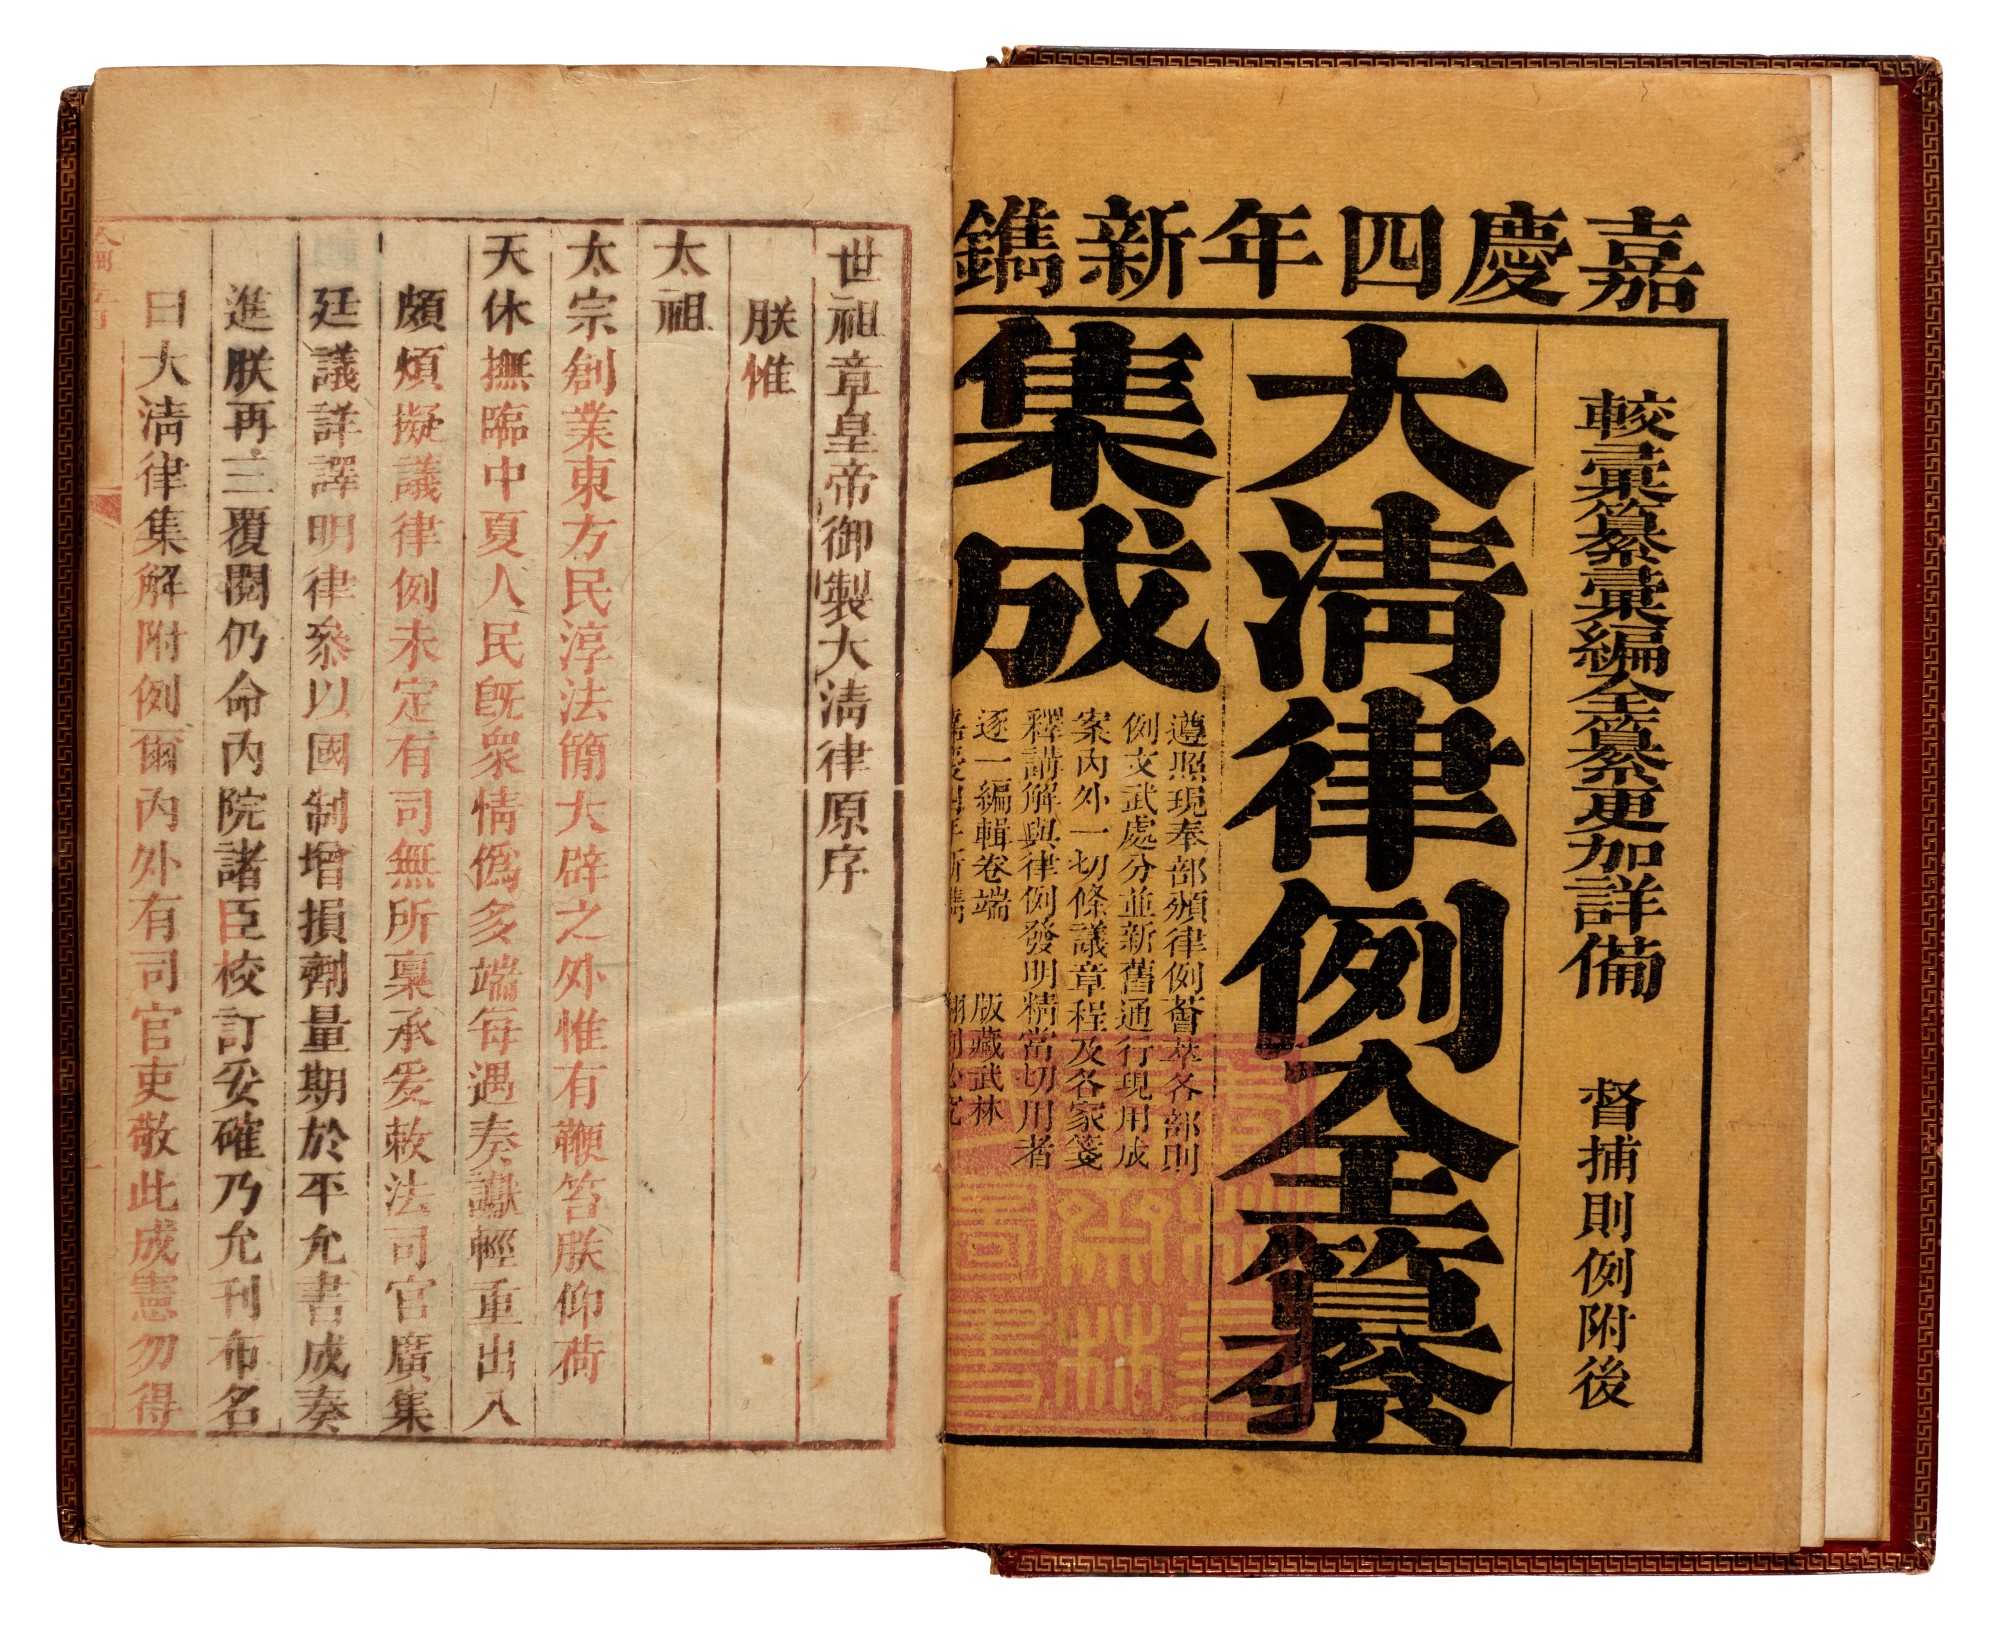 嘉慶四年新鐫
較彙纂彙編全纂更加詳備 督捕則例附後
大淸律例全纂
集成
遵照現奉部頒律例薈萃各部則
例文武處分並新舊通行現用成
案內外一切條議章程及各家箋
釋講解與律例發明精當切用者
逐一編輯卷端 版藏武林
世祖章皇帝御製大淸律原序
朕惟
太祖
太宗創業東方民淳法簡大辟之外惟有鞭笞朕仰荷
天休撫臨中夏人民旣衆情僞多端每遇奏讞輕重出入
頗煩擬議律例未定有司無所稟承爰敕法司官廣集
廷議詳譯明律叅以國制增損劑量期於平允書成奏
進朕再三覆閱仍命內院諸臣校訂妥確乃允刊布名
曰大淸律集解附例爾內外有司官吏敬此成憲勿得